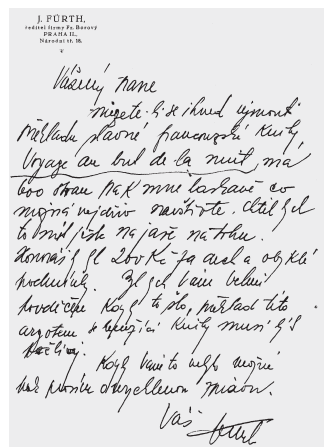 J. FÜRTH,
ředitel firmy Fr. Borový
PRAHA II.,
Národní tř. 18.
Vážený pane
můžete-li se ihned ujmouti
překladu slavné francouzské knihy
Voyage au but de la nuit, má
600 stran pak mne laskavě co
možná nejdřív navštivte. Chtěl bych
to míti již na jaře na trhu.
200 Kč za arch a obyklé
podmínky. Byl bych Vám velmi
povděčen kdyby to šlo, překlad této
argotem se knihy musí býti
Kdyby Vám to nebylo možné
pak prosím o zprávu.
Váš